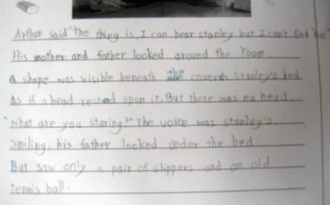 Arthur said "The thing is, I can hear stanley but I can't find him"
His mother and father looked around the room.
A shape was visible beneath the covers stanley's bed
As if a head rested upon it. But there was no head.
"What are you staring?" The voice was stanley's.
Smiling, his father looked under the bed.
But saw only a pair of slippers and an old
tennis ball.